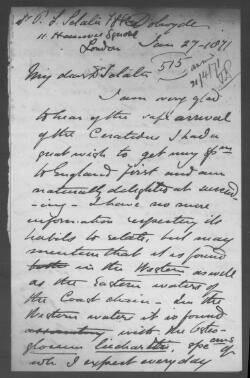 Dr P. L. Sclater
11. Hanover Square
London
Jan 27 - 1871
515
21/4/71
My dear Dr Sclater
I am very glad
to hear of the safe arrival
of the Ceratodus I had a
great wish to get my spm
to England first and am
naturally delighted at succeed
-ing - I have no more
information respecting its
habits to relate, but may
mention that it is found
both in the Western as well
as the Eastern waters of
the Coast chain - In the
Western waters it is found
with the Osteo-
glossum Leichardti, specms
of wh I expect everyday